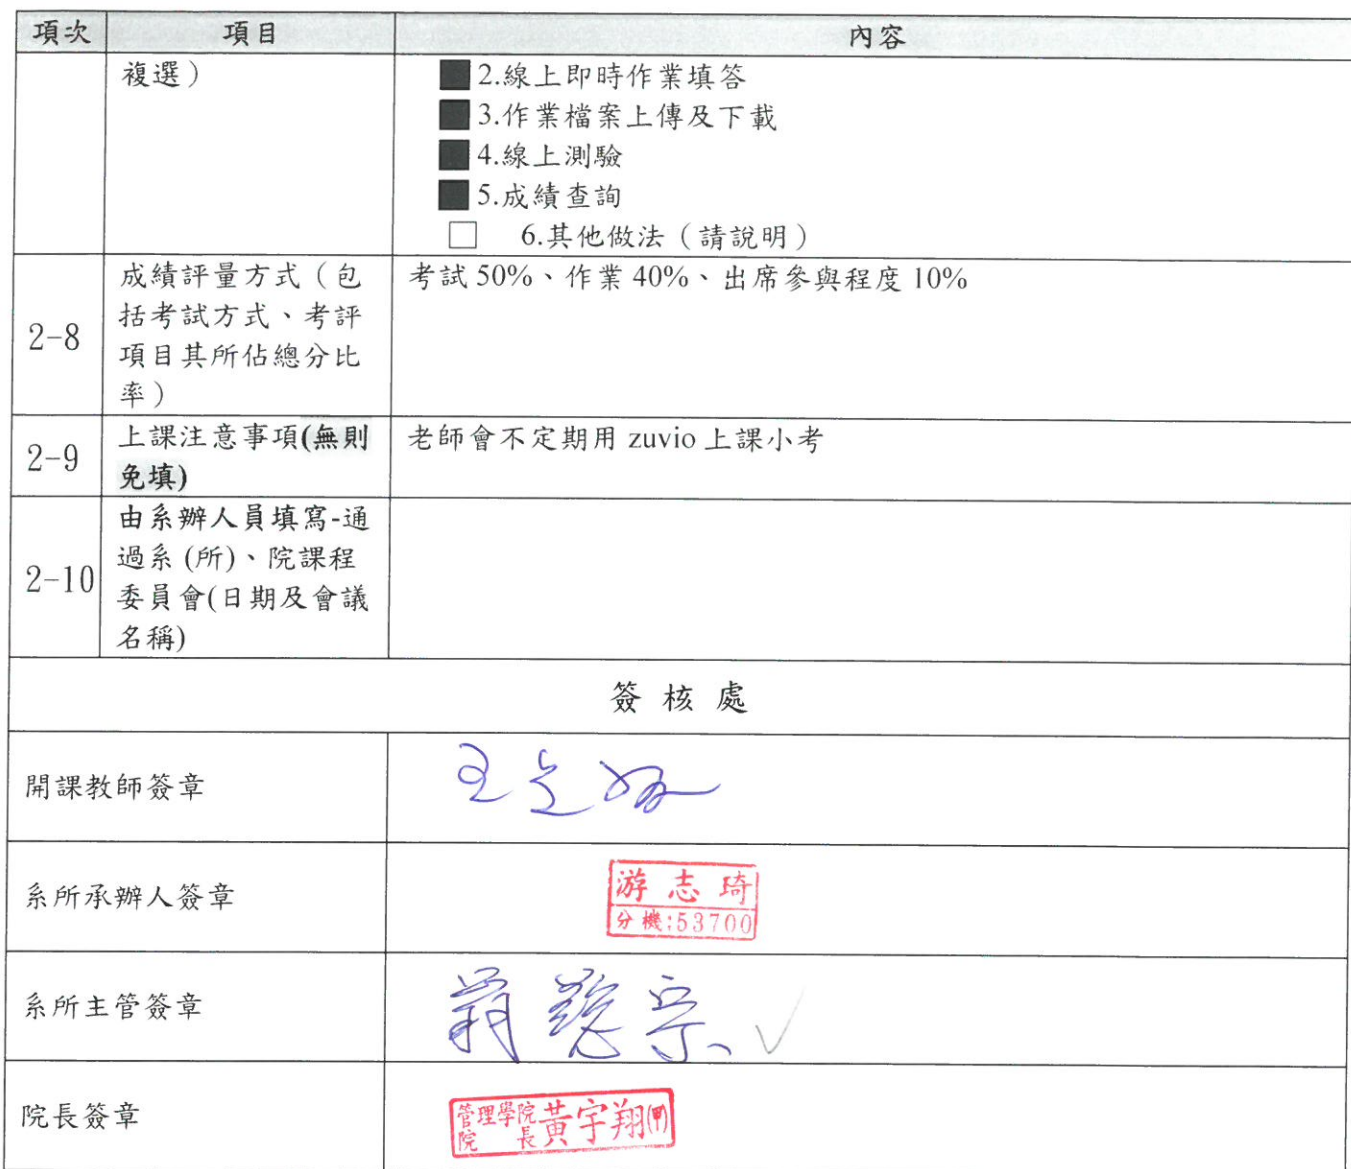 項次 項目 內容
複選）
■2.線上即時作業填答
■3.作業檔案上傳及下載
■4.線上測驗
■5.成績查詢
□ 6.其他做法（請說明）
2-8
成績評量方式（包
括考試方式、考評
項目其所佔總分比
率）
考試 50%、作業 40%、出席參與程度 10%
2-9
上課注意事項(無則
免填)
老師會不定期用 zuvio 上課小考
2-10
由系辦人員填寫-通
過系 (所)、院課程
委員會(日期及會議
名稱)
簽核處
開課教師簽章
系所承辦人簽章
游志琦
分機:53700
系所主管簽章
院長簽章
管理學院
院長
黃宇翔(甲)